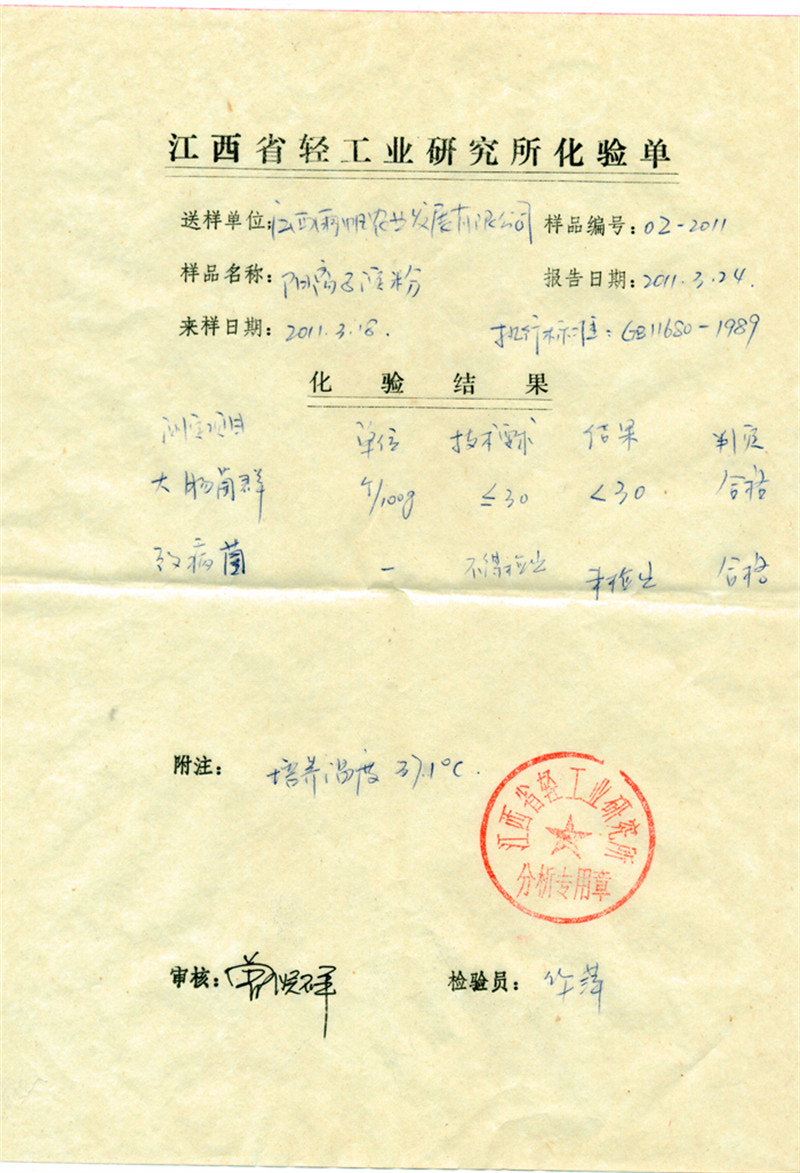 江西省轻工业研究所化验单
送样单位:江西 农业发展有限公司 样品编号:02-2011
样品名称:阳离子淀粉 报告日期:2011.3.24.
来样日期:2011.3.18. 执行标准:GB11680-1989
化验结果
测定项目 单位 技术要求 结果 判定
大肠菌群 个/100g ≤30 <30 合格
致病菌 - 不得检出 未检出 合格
附注: 培养温度 37.1°C.
江西省轻工业研究所
分析专用章
审核: 检验员: